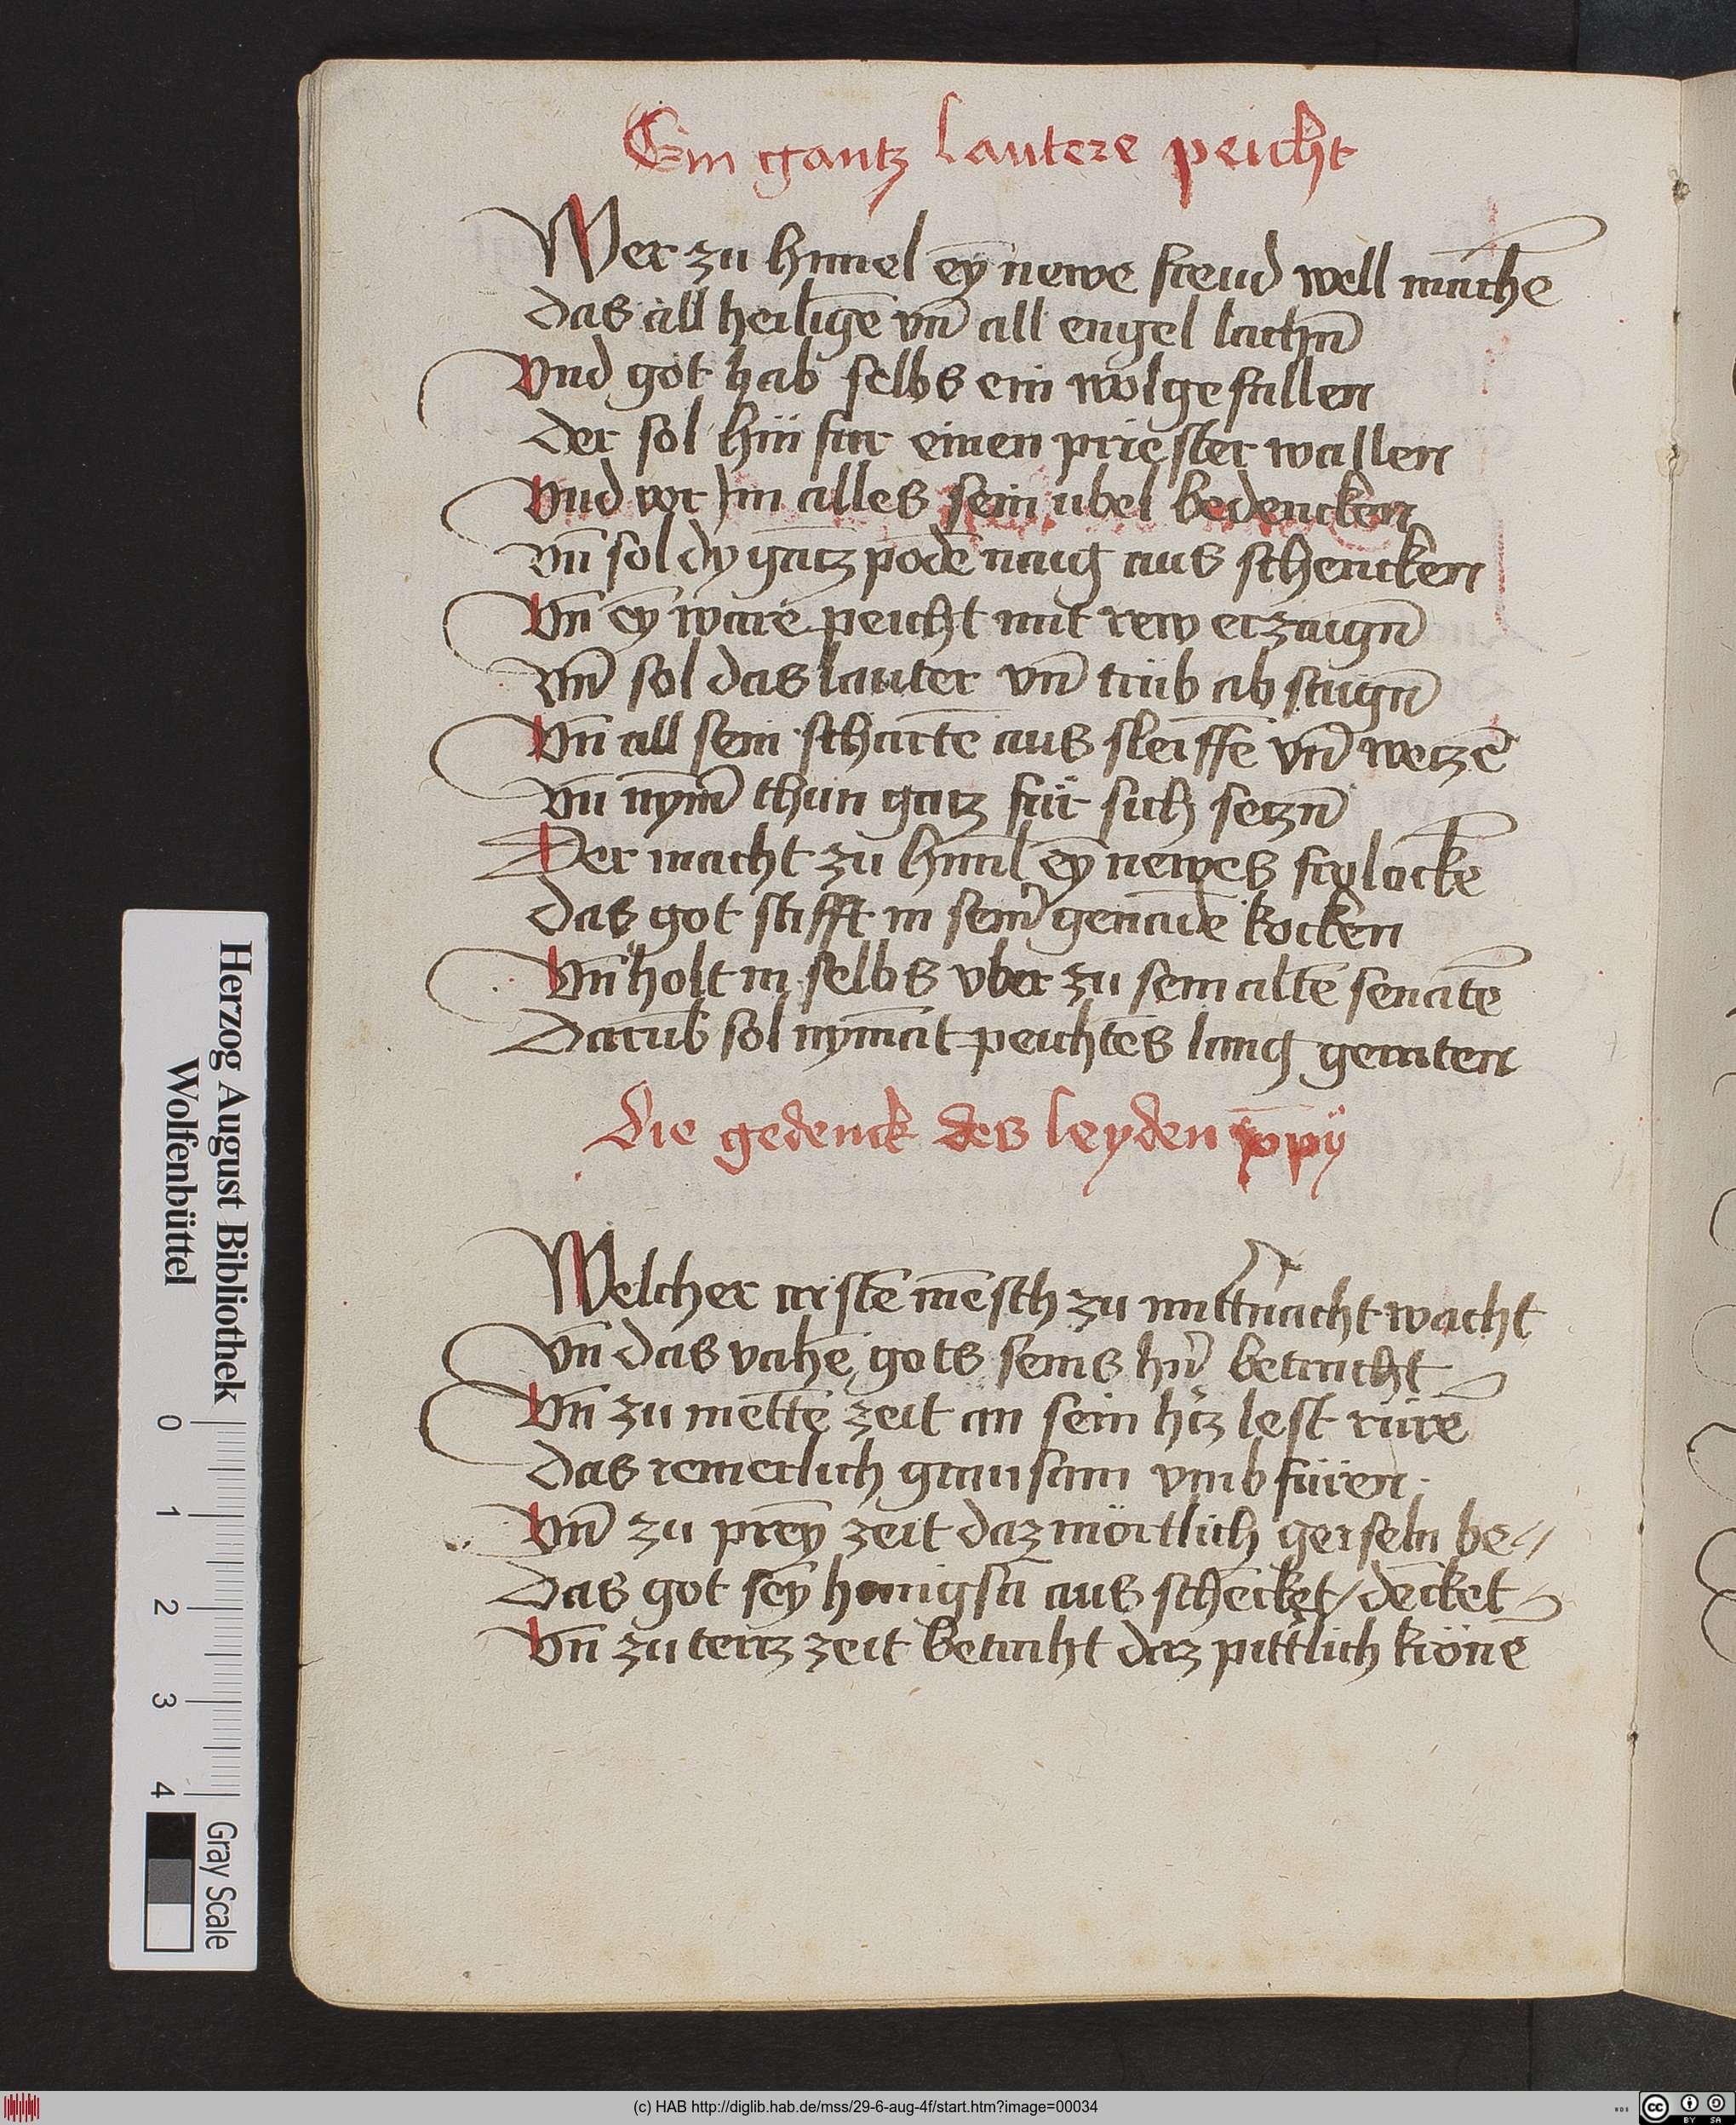 Ein gantz lautere peicht
Wer zu himel eȳ newe freud well mache
das all heilige vn̄ all engel lachn̄
vnd got hab selbs ein wolgefallen
der sol hin fur einen priester wallen
vnd vor im alles sein ubel bedencken
vn̄ sol dy gātz pode naig aus schencken
vn̄ eȳ ware peicht mit rew erzaign̄
vn̄ sol das lauter vn̄ trüb ab saign̄
vn̄ all sein scharte aus sleiffe vn̄ wetzē
vn̄ nym̄ thun gātz für sich setzn̄
Der macht zu himl eȳ newes frolocke
das got stifft in seinr genade kocken
vn̄ holt in selbs vber zu sein alte senatē
Darub sol nymāt peichtēs lang geraten
Die gedenck des leyden xp̄ī
Welcher cristē mēsch zu mittnacht wacht
vn̄ das vahē gots seins hrn̄ betracht
vn̄ zu mette zeit an sein hrtz lest rürē
das iemerlich grausam vmb füren.
vn̄ zu prey zeit daz mörtlich geiseln be⸗
Das got seȳ honigsā aus schēcket/decket
vn̄ zu tertz zeit betracht daz pittrlich krönē
Herzog August Bibliothek
Wolfenbüttel
0 1 2 3 4
Gray Scale
(c) HAB http://diglib.hab.de/mss/29-6-aug-4f/start.htm?image=00034
CC BY SA